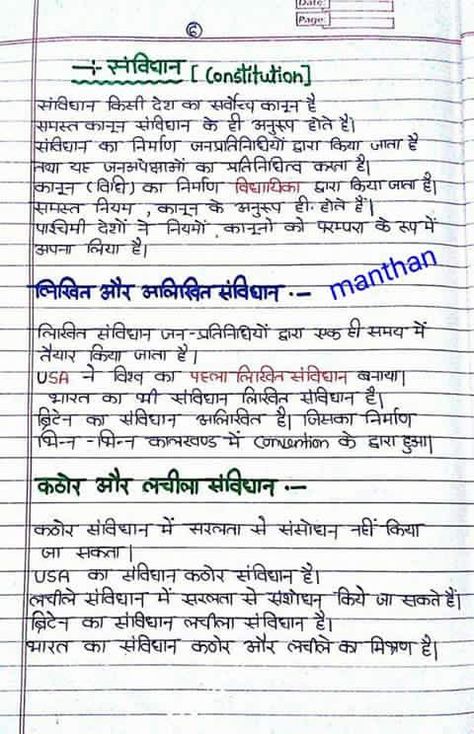 Date:
Page:
6
-:- संविधान [Constitution]
संविधान किसी देश का सर्वोच्च कानून है
समस्त कानून संविधान के ही अनुरूप होते है।
संविधान का निर्माण जनप्रतिनिधियों द्वारा किया जाता है
तथा यह जनअपेक्षाओं का प्रतिनिधित्व करता है।
कानून (विधि) का निर्माण विधायिका द्वारा किया जाता है।
समस्त नियम , कानून के अनुरूप ही होते हैं।
पाश्चिमी देशों ने नियमों , कानूनो को परम्परा के रूप में
अपना लिया है।
manthan
लिखित और अलिखित संविधान :—
लिखित संविधान जन-प्रतिनिधियों द्वारा एक ही समय में
तैयार किया जाता है।
USA ने विश्व का पहला लिखित संविधान बनाया।
भारत का भी संविधान लिखित संविधान है।
ब्रिटेन का संविधान अलिखित है। जिसका निर्माण
भिन्न -भिन्न कालखण्ड में Convention के द्वारा हुआ।
कठोर और लचीला संविधान :—
कठोर संविधान में सरलता से संसोधन नहीं किया
जा सकता।
USA का संविधान कठोर संविधान है।
लचीले संविधान में सरलता से संशोधन किये जा सकते हैं।
ब्रिटेन का संविधान लचीला संविधान है।
भारत का संविधान कठोर और लचीले का मिश्रण है।